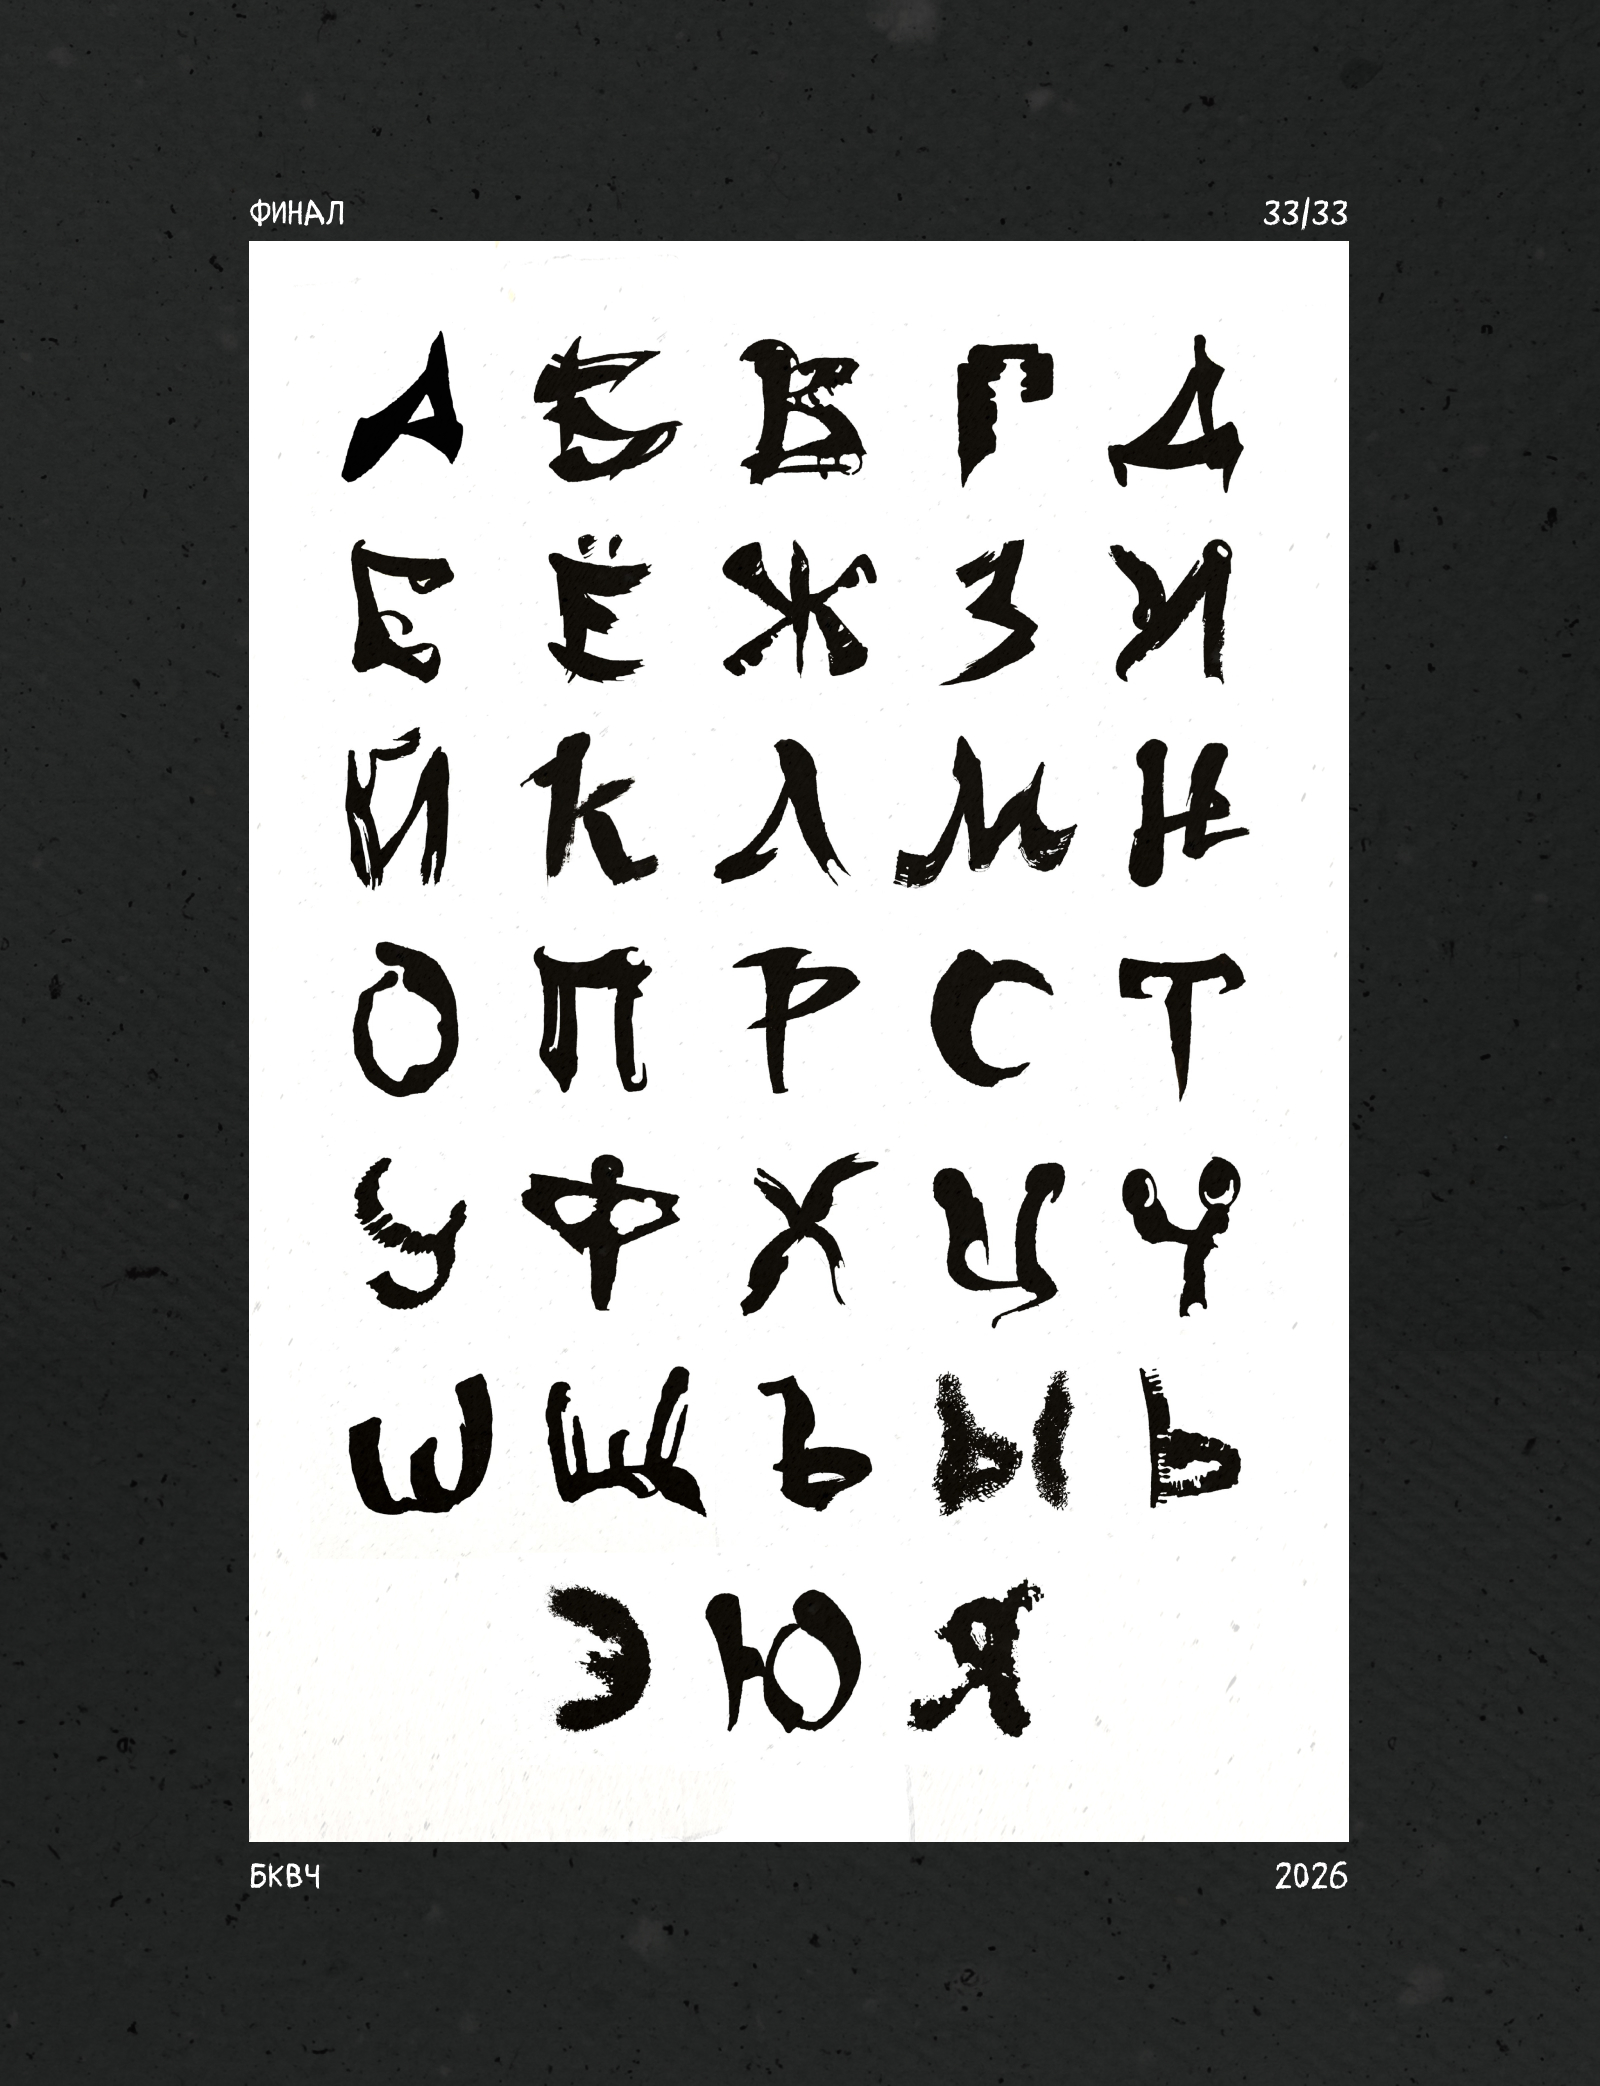 ФИНАЛ 33/33
А Б В Г Д
Е Ё Ж З И
Й К Л М Н
О П Р С Т
У Ф Х Ц Ч
Ш Щ Ъ Ы Ь
Э Ю Я
БКВЧ 2026